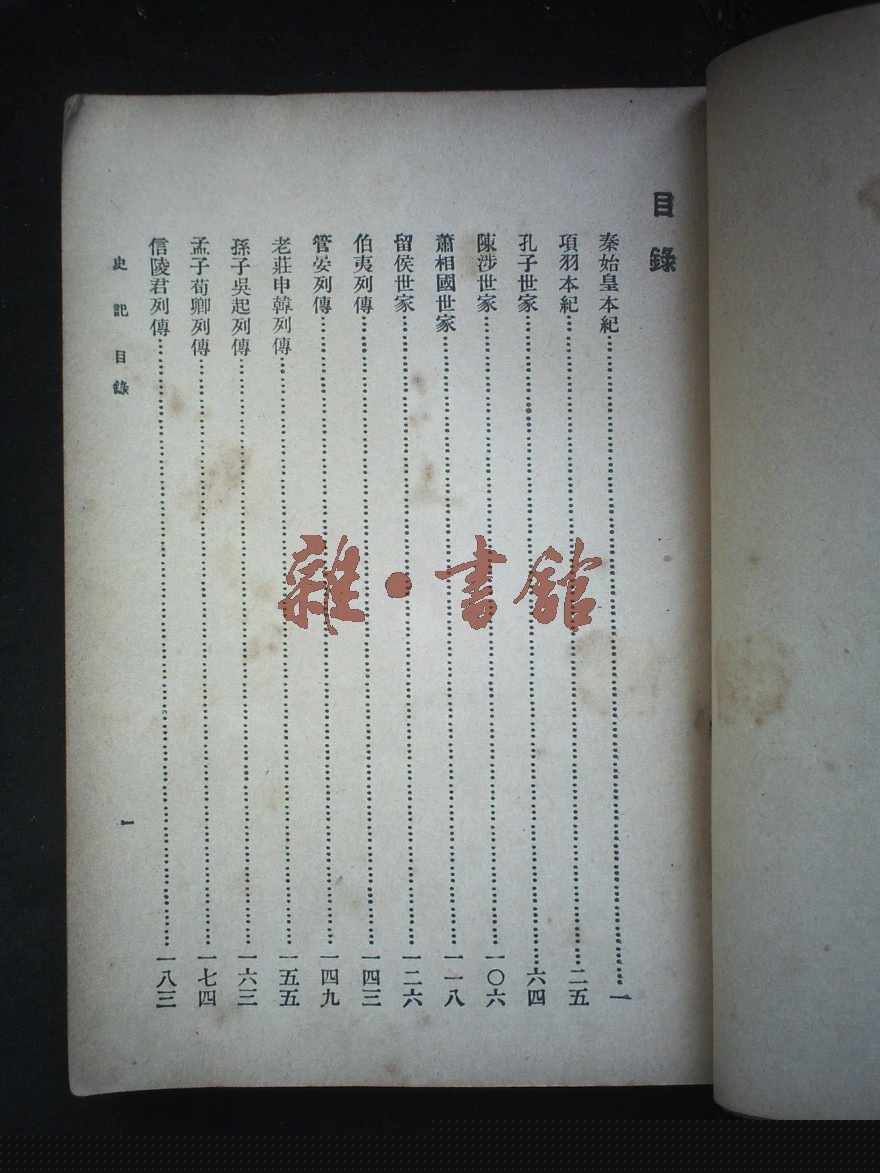 目錄
秦始皇本紀……一
項羽本紀……二五
孔子世家……六四
陳涉世家……一〇六
蕭相國世家……一一八
留侯世家……一二六
伯夷列傳……一四三
管晏列傳……一四九
老莊申韓列傳……一五五
孫子吳起列傳……一六三
孟子荀卿列傳……一七四
信陵君列傳……一八三
史記目錄
一
雜·書館